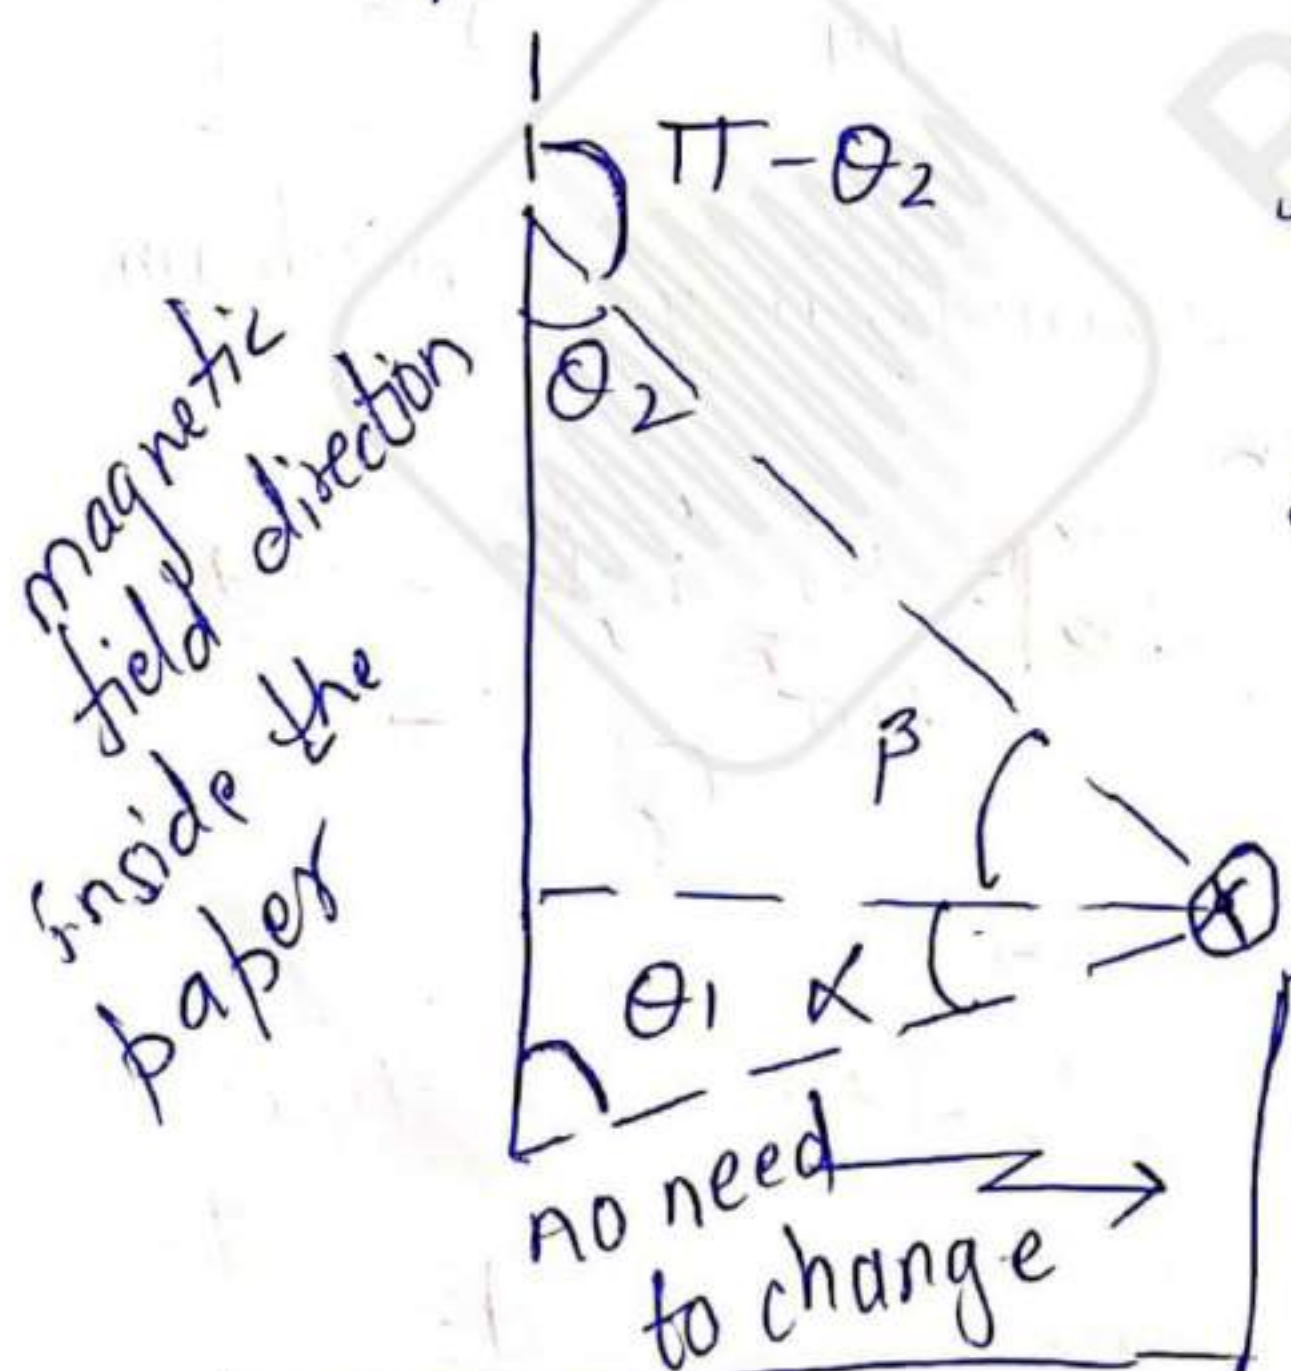 π - θ2
θ2
magnetic
field direction
inside the
paper
β
θ1 α
no need
to change